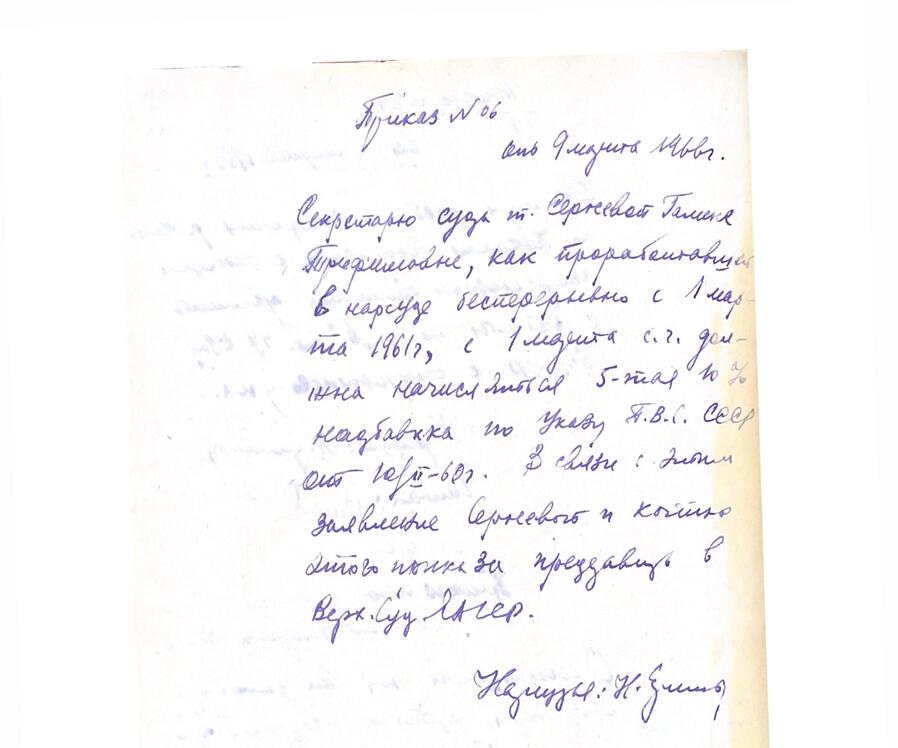 Приказ № 06
от 9 марта 1966г.
Секретарю суда т. Сергеевой Галине
Трифимовне, как проработавшей
в нарсуде бесперерывно с 1 мар-
та 1961г, с 1 марта с.г. дол-
жна начисляться 5-тая 10%
надбавка по Указу П.В.С. СССР
от 10/II-60г. В связи с этим
заявление Сергеевой и копию
этого приказа предъявить в
Верх.Суд ЯАССР.
Нарсудья: Н.